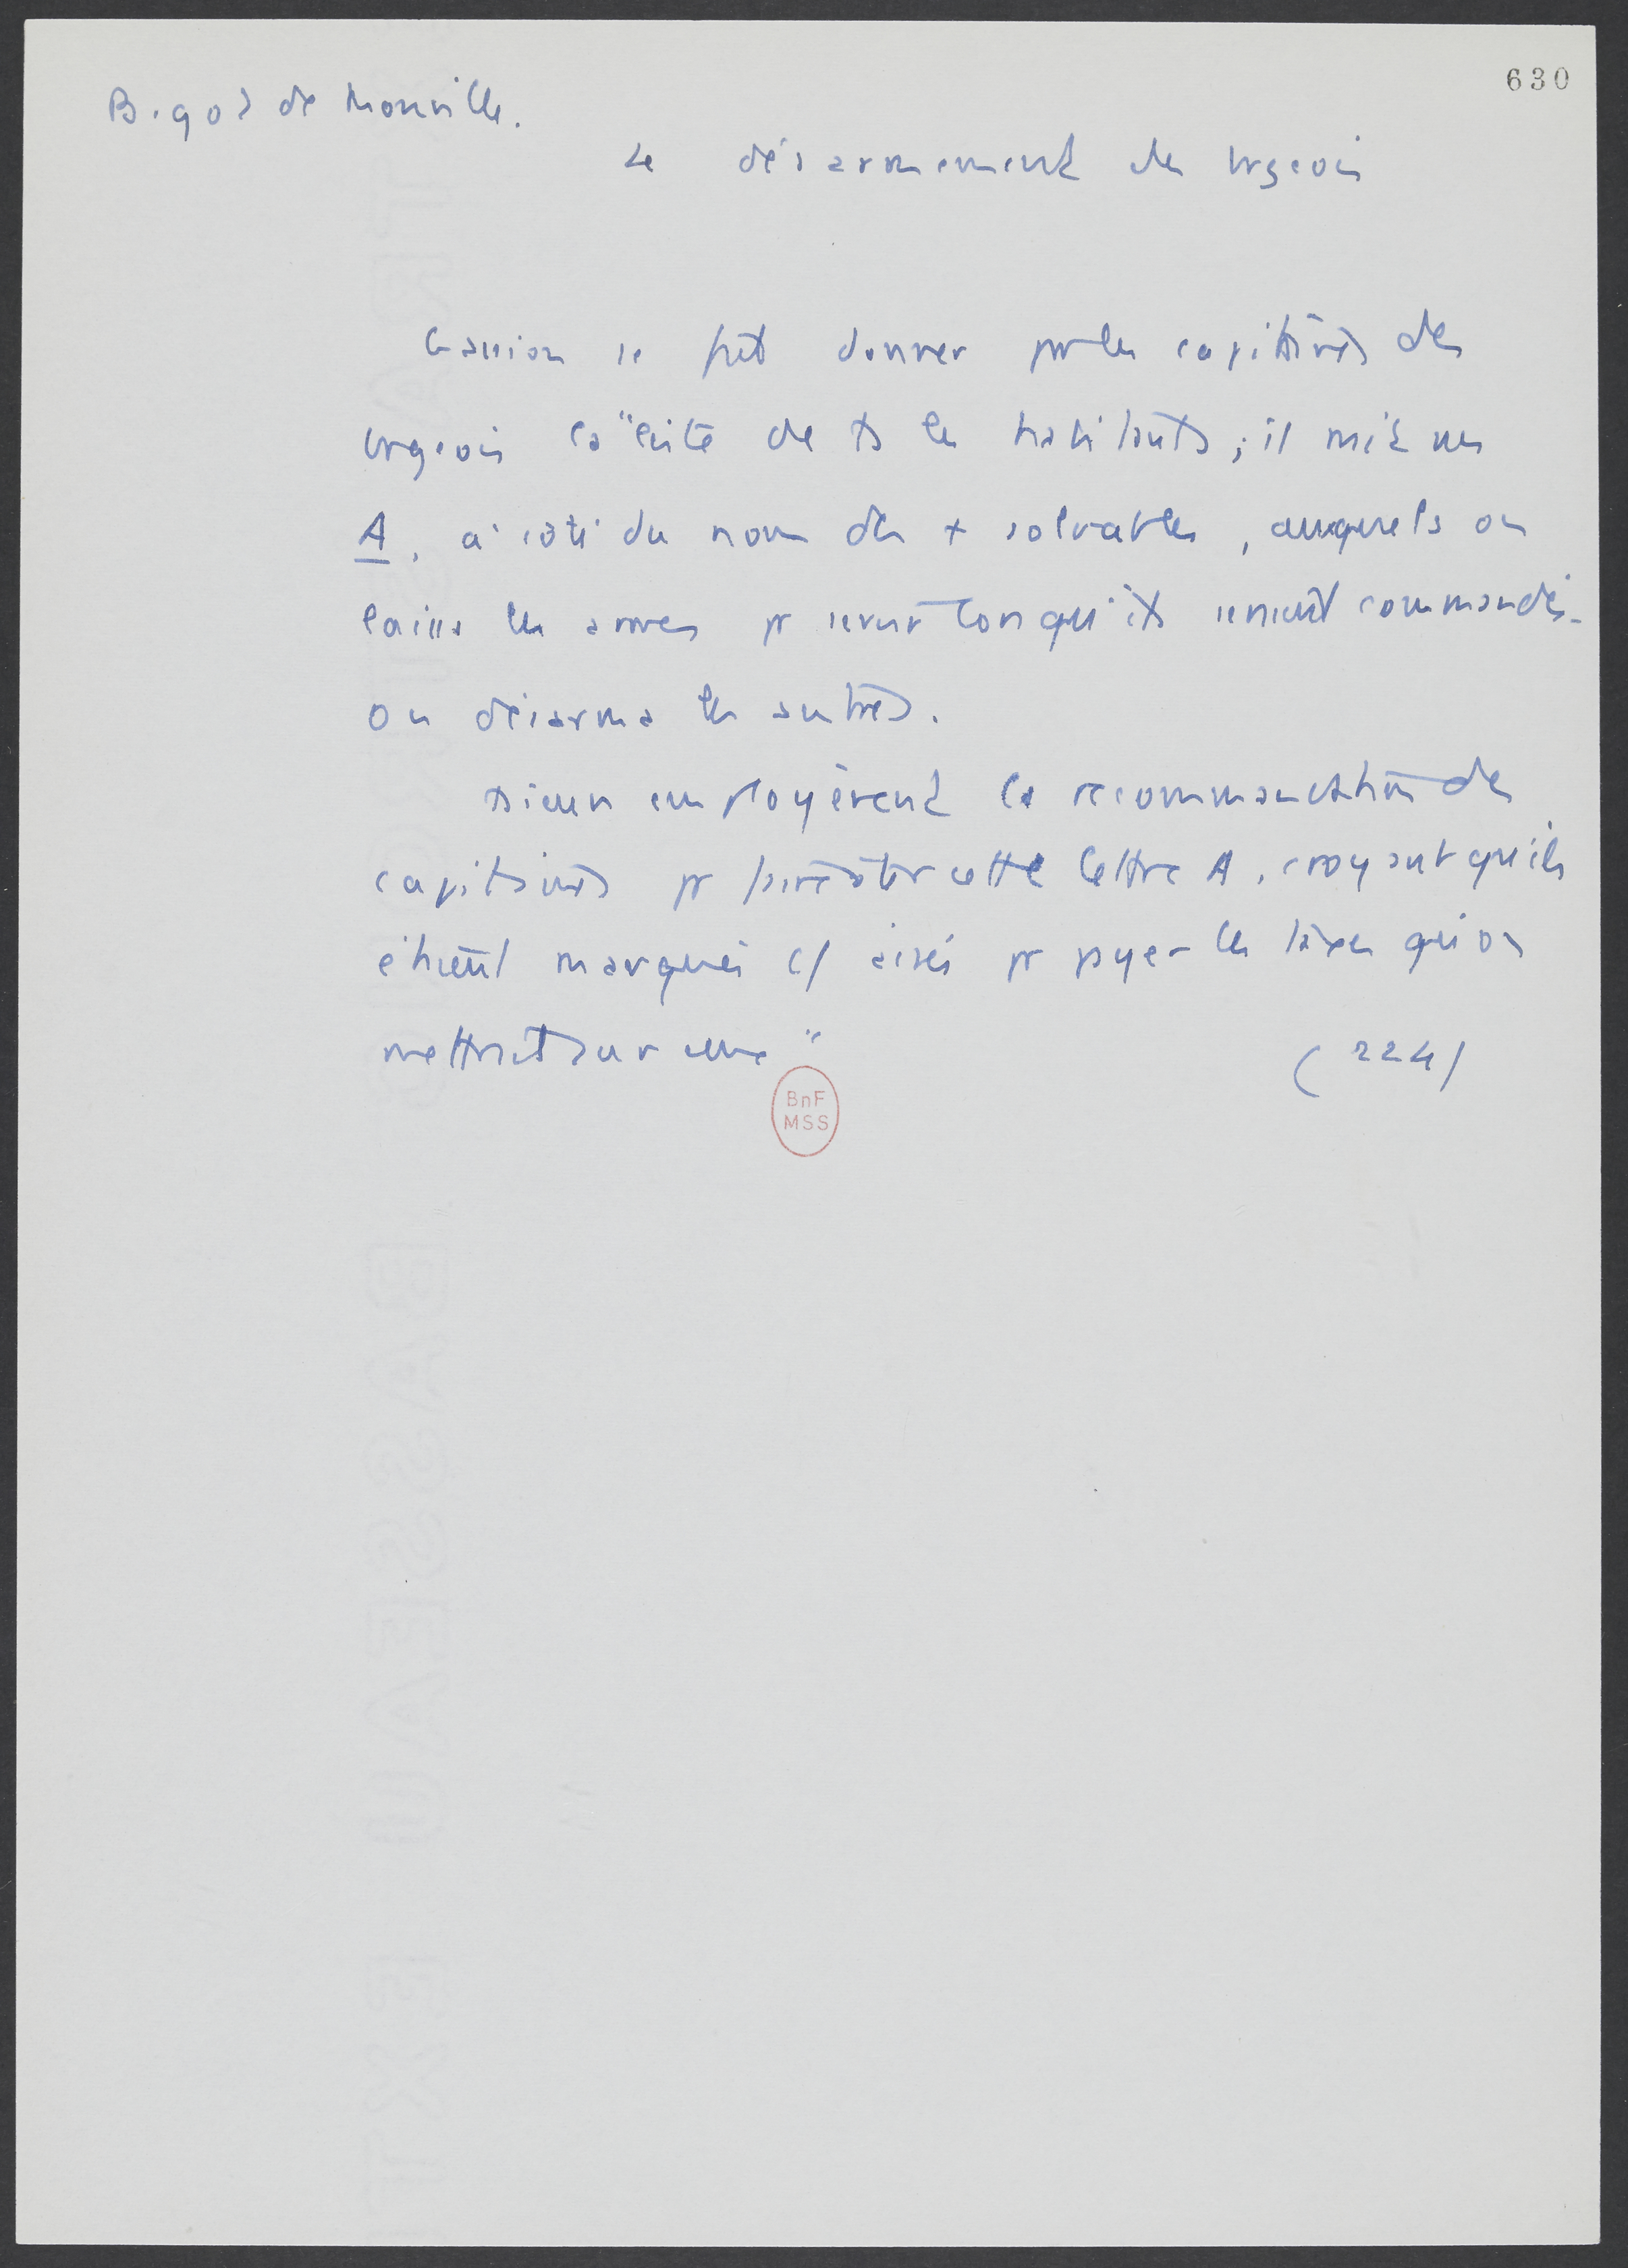 630
Bigot de Monville.
Le désarmement des brgeois
Gassion se fit donner par les capitaines des
brgeois la "liste de ts les habitants ; il mit un
A, à côté du nom des + solvables, auxquels on
laissa les armes pr servir lorsqu'ils seraient commandés.
on désarma les autres.
employèrent la recommandation des
capitaines pr faire ôter cette lettre A, croyant qu'ils
étaient marqués c/ aisés pr payer les taxes qu'on
mettrait sur "
(224)
BnF
MSS